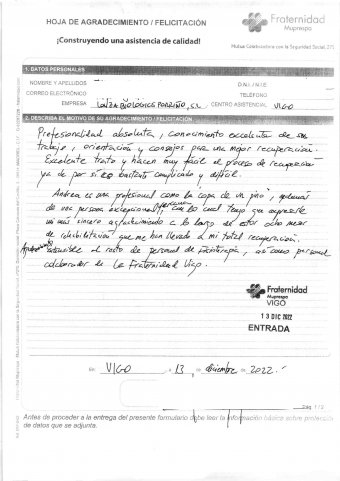 HOJA DE AGRADECIMIENTO / FELICITACIÓN
¡Construyendo una asistencia de calidad!
Fraternidad
Muprespa
Mutua Colaboradora con la Seguridad Social, 275
1. DATOS PERSONALES
NOMBRE Y APELLIDOS
D.N.I./N.I.E.
CORREO ELECTRÓNICO
TELÉFONO
EMPRESA LONZA BIOLOGICS PORRIÑO, S.L. CENTRO ASISTENCIAL VIGO
2. DESCRIBA EL MOTIVO DE SU AGRADECIMIENTO / FELICITACIÓN
Profesionalidad absoluta, conocimiento excelente de su
trabajo, orientación y consejos para una mejor recuperación.
Excelente trato y hacen muy fácil el proceso de recuperación
ya de por sí es bastante complicado y difícil.
Andrea es una profesional como la copa de un pino, además
de una persona excepcional, con lo cual tengo que expresarle
mi más sincero agradecimiento a lo largo de estos ocho meses
de rehabilitación que me han llevado a mi total recuperación.
extensible al resto de personal de Fisioterapia, así como personal
colaborador de La Fraternidad Vigo.
Fraternidad
Muprespa
VIGO
13 DIC 2022
ENTRADA
En VIGO, 13, de diciembre de 2022.
Pág. 1 / 2
Antes de proceder a la entrega del presente formulario debe leer la información básica sobre protección
de datos que se adjunta.